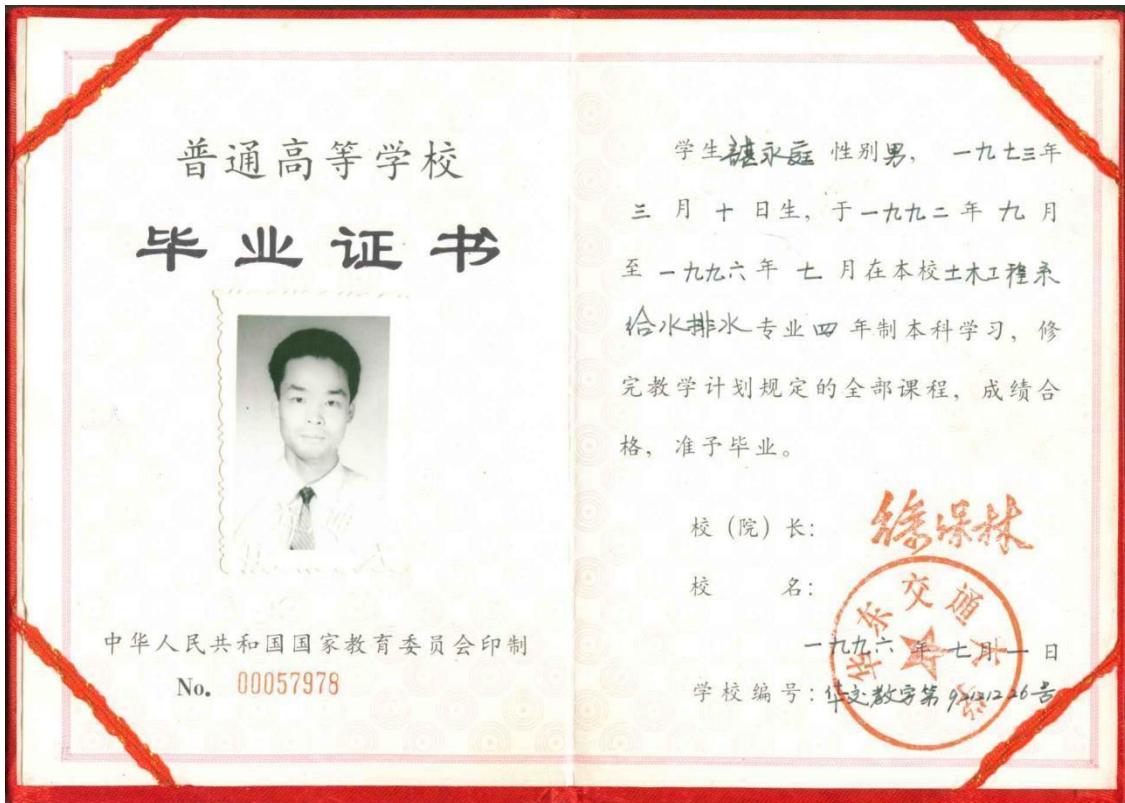 普通高等学校
毕业证书
中华人民共和国国家教育委员会印制
No. 00057978
学生 永庭 性别男， 一九七三年
三 月 十 日生，于一九九二年 九 月
至 一九九六年 七 月在本校土木工程系
给水排水专业四 年制本科学习，修
完教学计划规定的全部课程，成绩合
格，准予毕业。
校（院）长：
校 名：
华东交通大学
一九九六 年 七月一 日
学校编号：华交教字第 号